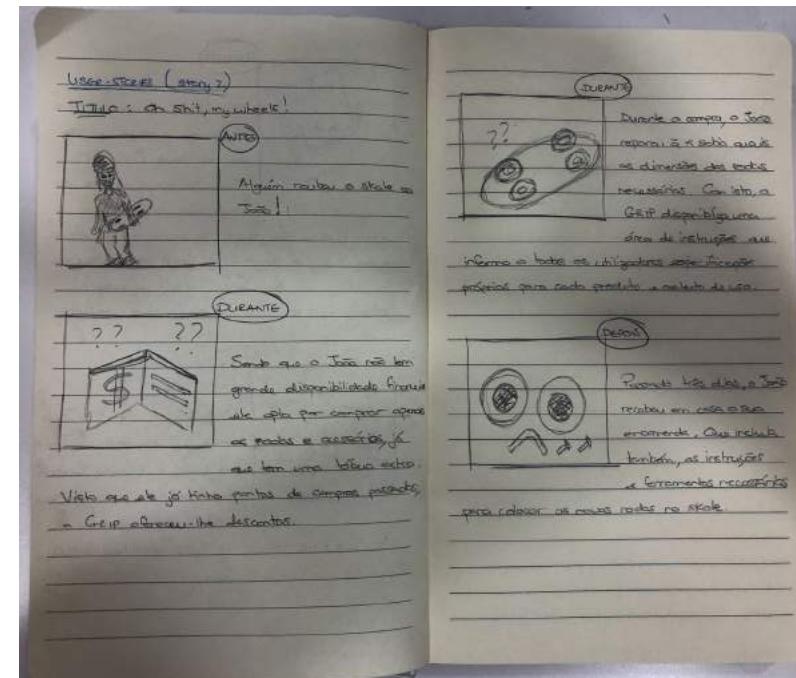 USER-STORIES (story 2)
TITULO: Oh shit, my wheels!
ANTES
Alguém roubou o skate ao
João!
DURANTE
?? ??
$
Sendo que o João não tem
grande disponibilidade financeira
ele opta por comprar apenas
as rodas e acessórios, já
que tem uma tábua extra.
Visto que ele já tinha pontos de compras passadas,
a GRIP ofereceu-lhe descontos.
DURANTE
??
Durante a compra, o João
reparou q ñ sabia quais
as dimensões das rodas
necessárias. Com isto, a
GRIP uma
área de instruções que
informa a todos os utilizadores
próprias para cada produto e de uso.
DEPOIS
Passando três dias, o João
recebeu em casa a sua
encomenda. Que incluia
também, as instruções
e ferramentas necessárias
para colocar as novas rodas no skate.